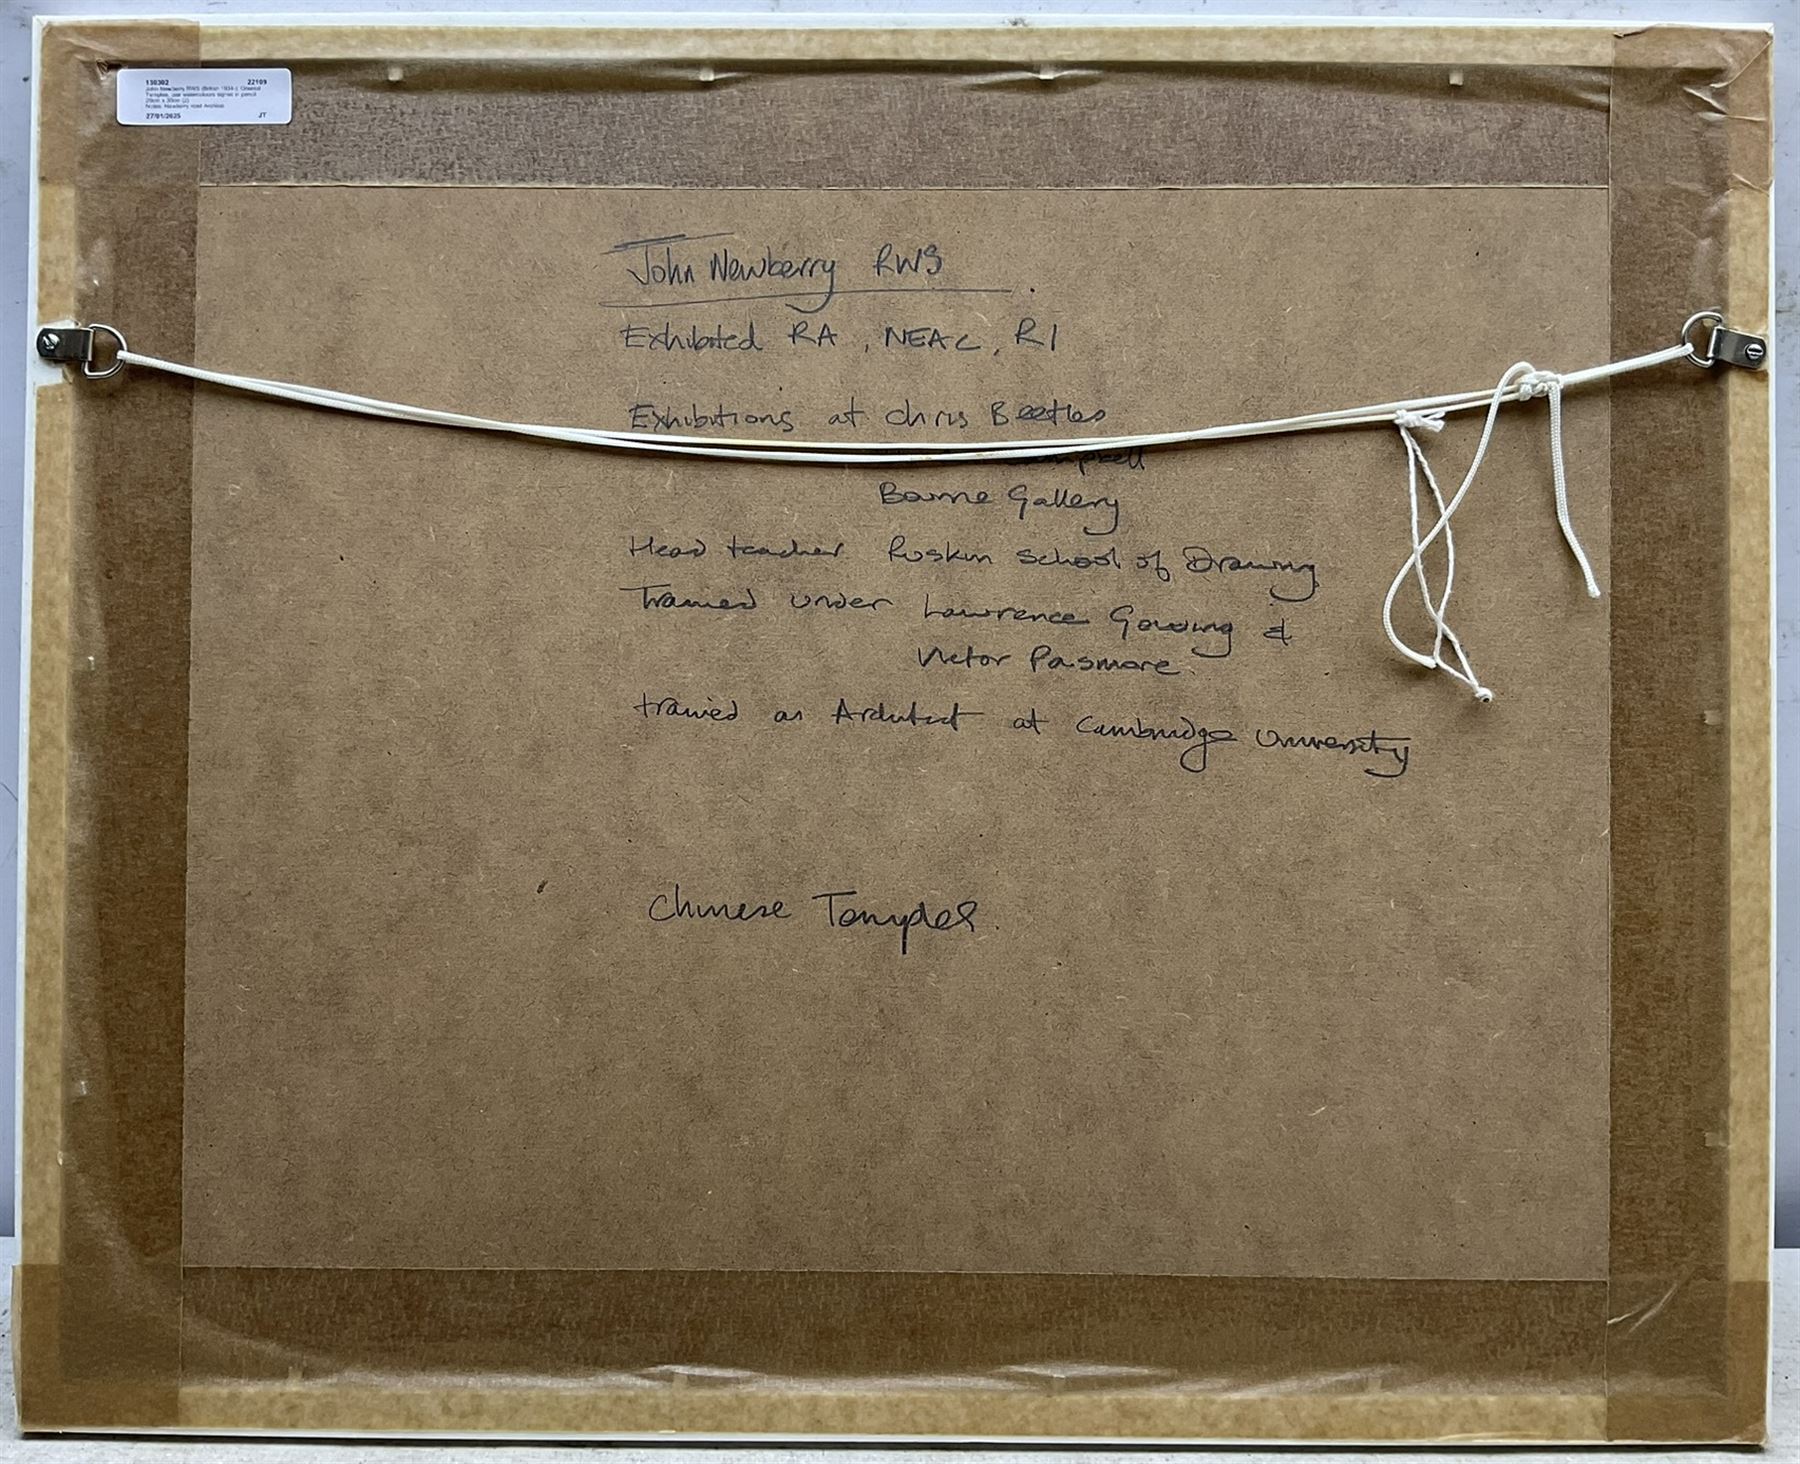 130302 22109
John Newberry RWS (British 1934-): Oriental
Temples, pair watercolours signed in pencil
29cm x 39cm (2)
Notes: Newberry read Architec
27/01/2025 JT
John Newberry RWS
Exhibited RA, NEAC, RI
Exhibitions at Chris Beetles
Bourne Gallery
Head teacher Ruskin School of Drawing
Trained under Lawrence Gowing &
Victor Pasmore.
trained as Architect at Cambridge University
Chinese Temples.